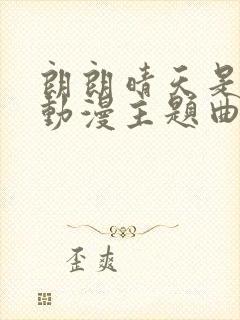 朗朗晴天是
動漫主題曲
歪爽